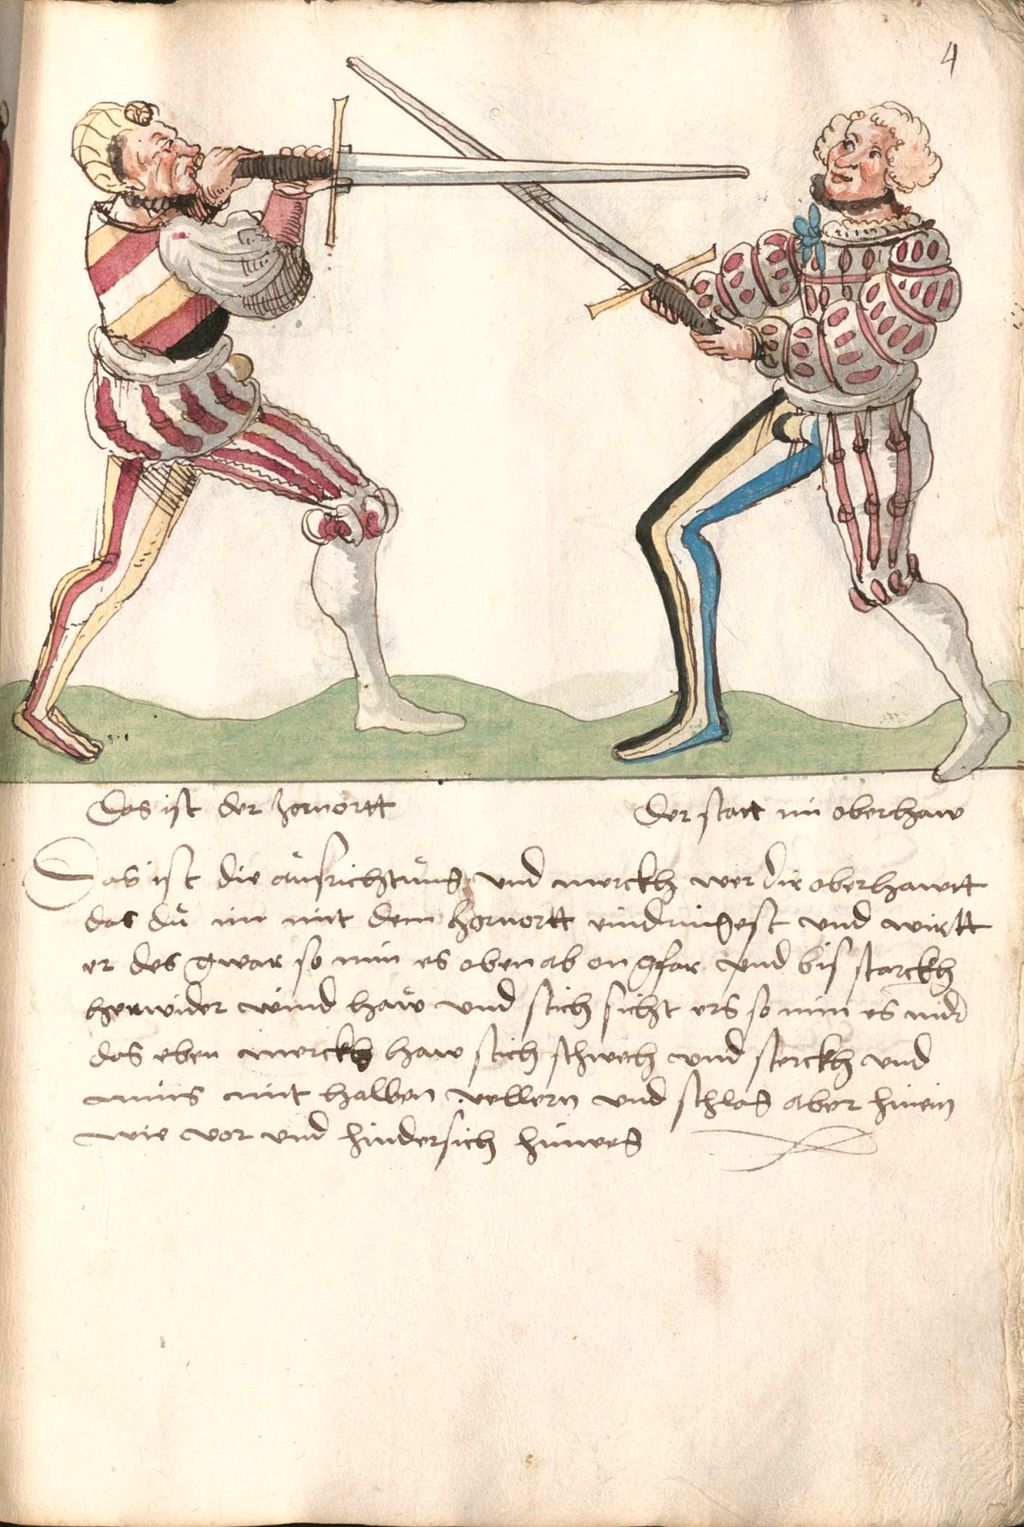 4
Das ist der zornortt
Der statt im oberhaw
Das ist die ausrichtung und merckh wer dir oberhawtt
das du im mit dem zornortt eindringest und wirtt
er des gwar so nim es oben ab on gfar und bis starckh
herwider wind haw und stich sicht ers so nim es nidr
das eben merckh haw stich schwech und sterckh und
mit halben und schlag aber hinein
wie vor und hindersich hinweg